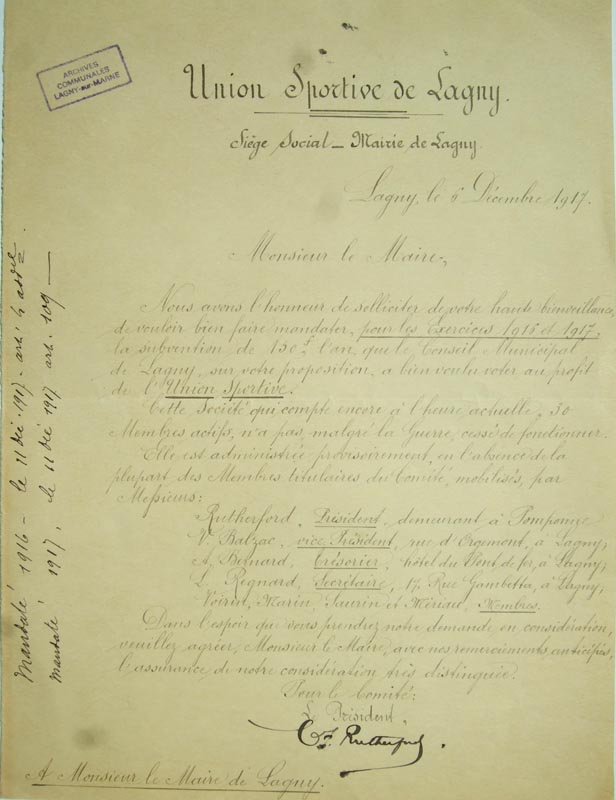 ARCHIVES
COMMUNALES
LAGNY-sur-MARNE
Union Sportive de Lagny.
Siège Social _ Mairie de Lagny
Lagny, le 6 Décembre 1917.
Monsieur le Maire,
Nous avons l'honneur de solliciter de votre haute bienveillance,
de vouloir bien faire mandater, pour les Exercices 1916 et 1917,
la subvention de 150f l'an, que le Conseil Municipal
de Lagny, sur votre proposition, a bien voulu voter au profit
de l'Union Sportive.
Cette Société qui compte encore à l'heure actuelle, 30
Membres actifs, n'a pas, malgré la Guerre, cessé de fonctionner.
Elle est administrée provisoirement, en l'absence de la
plupart des Membres titulaires du Comité, mobilisés, par
Messieurs:
Rutherford, Président, demeurant à Pomponne
V. Balzac, vice Président, rue d'Orgemont, à Lagny,
A. Bernard, Trésorier, hôtel du Pont de fer, à Lagny,
L. Regnard, Secrétaire, 17, Rue Gambetta, à Lagny,
Voirin, Marin, Saurin et Mériau, Membres.
Dans l'espoir que vous prendrez notre demande en considération,
veuillez agréer, Monsieur le Maire, avec nos remerciements anticipés,
l'assurance de notre considération très distinguée.
Pour le Comité:
Le Président,
Rutherford
A Monsieur le Maire de Lagny.
Mandaté 1916 - le 11 Déc. 1917 - art.
Mandaté 1917, le 11 Déc 1917 art. 109 —